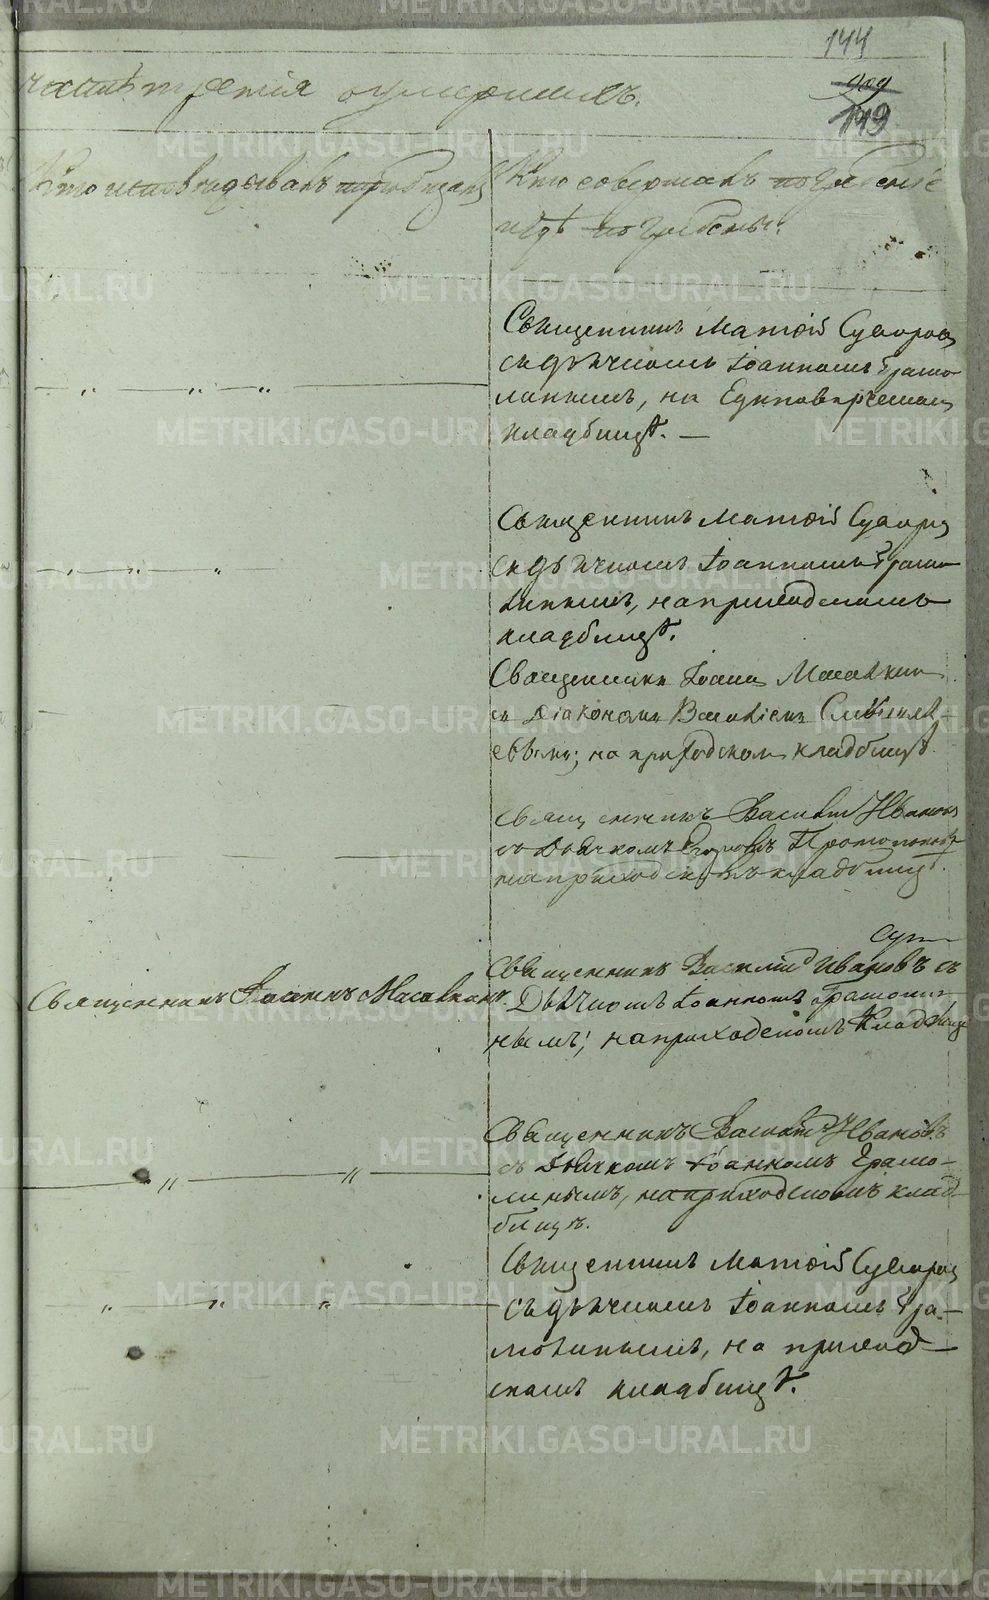 144
909
149
часть третія оумершихъ.
Кто исповѣдывалъ
Кто совершалъ погребеніе
и гдѣ погребены.
Священникъ Матѳій Суворов
съ дьячкомъ Іоанномъ Грамо
линымъ, на Единоверческом
кладбищѣ. —
Священникъ Матѳій Суворов
съ дьячкомъ Іоанномъ Грамо
линымъ, на приходскомъ
кладбищѣ.
Священникъ Іоанн
съ Діакономъ Василіемъ
на приходском кладбищѣ.
Священникъ Василій Ивановъ
съ Дьячкомъ
на приходскомъ кладбищѣ.
Священникъ Василій Ивановъ съ
Священникъ Іоаннъ
Дьячкомъ Іоанномъ Грамоли
нымъ; на приходскомъ Кладбище
Священникъ Василій Ивановъ
съ Дьячкомъ Іоанномъ Грамо-
линымъ, на приходскомъ клад
бищѣ.
Священникъ Матѳій Суворов
съ дьячкомъ Іоанномъ Гра-
молинымъ, на приход
скомъ кладбищѣ.
METRIKI.GASO-URAL.RU